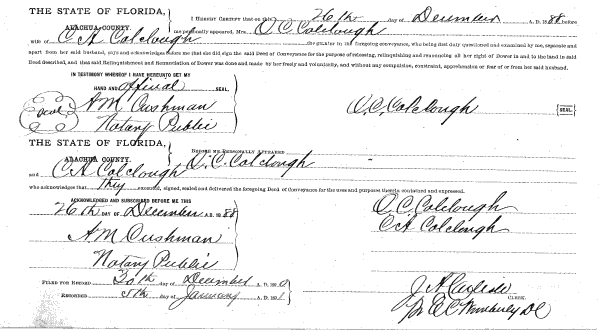 THE STATE OF FLORIDA,
ALACHUA COUNTY.
I HEREBY CERTIFY that on this 26th day of December A. D. 1888
me personally appeared, Mrs. O. C. Colclough
wife of C A Colclough the grantor in the foregoing conveyance, who being first duly questioned and examined by me, separate and
apart from her said husband, says and acknowledges before me that she did sign the said Deed of Conveyance for the purpose of releasing, relinquishing and renouncing all her right of Dower in and to the land in said
Deed described, and that said Relinquishment and Renunciation of Dower was done and made by her freely and voluntarily, and without any compulsion, constraint, apprehension or fear of or from her said husband.
IN TESTIMONY WHEREOF I HAVE HEREUNTO SET MY
HAND AND official SEAL.
Seal
A M Cushman
Notary Public
O. C. Colclough SEAL.
THE STATE OF FLORIDA,
ALACHUA COUNTY.
BEFORE ME PERSONALLY APPEARED O. C. Colclough
and C A Colclough
who acknowledges that they executed, signed, sealed and delivered the foregoing Deed of Conveyance for the uses and purposes therein contained and expressed.
ACKNOWLEDGED AND SUBSCRIBED BEFORE ME THIS
26th DAY OF December A. D. 1888
O. C. Colclough
C A Colclough
A M Cushman
Notary Public
FILED FOR RECORD 30th day of December A. D. 189
RECORDED 5th day of January A. D. 1891
CLERK.
E C Wimberly D C